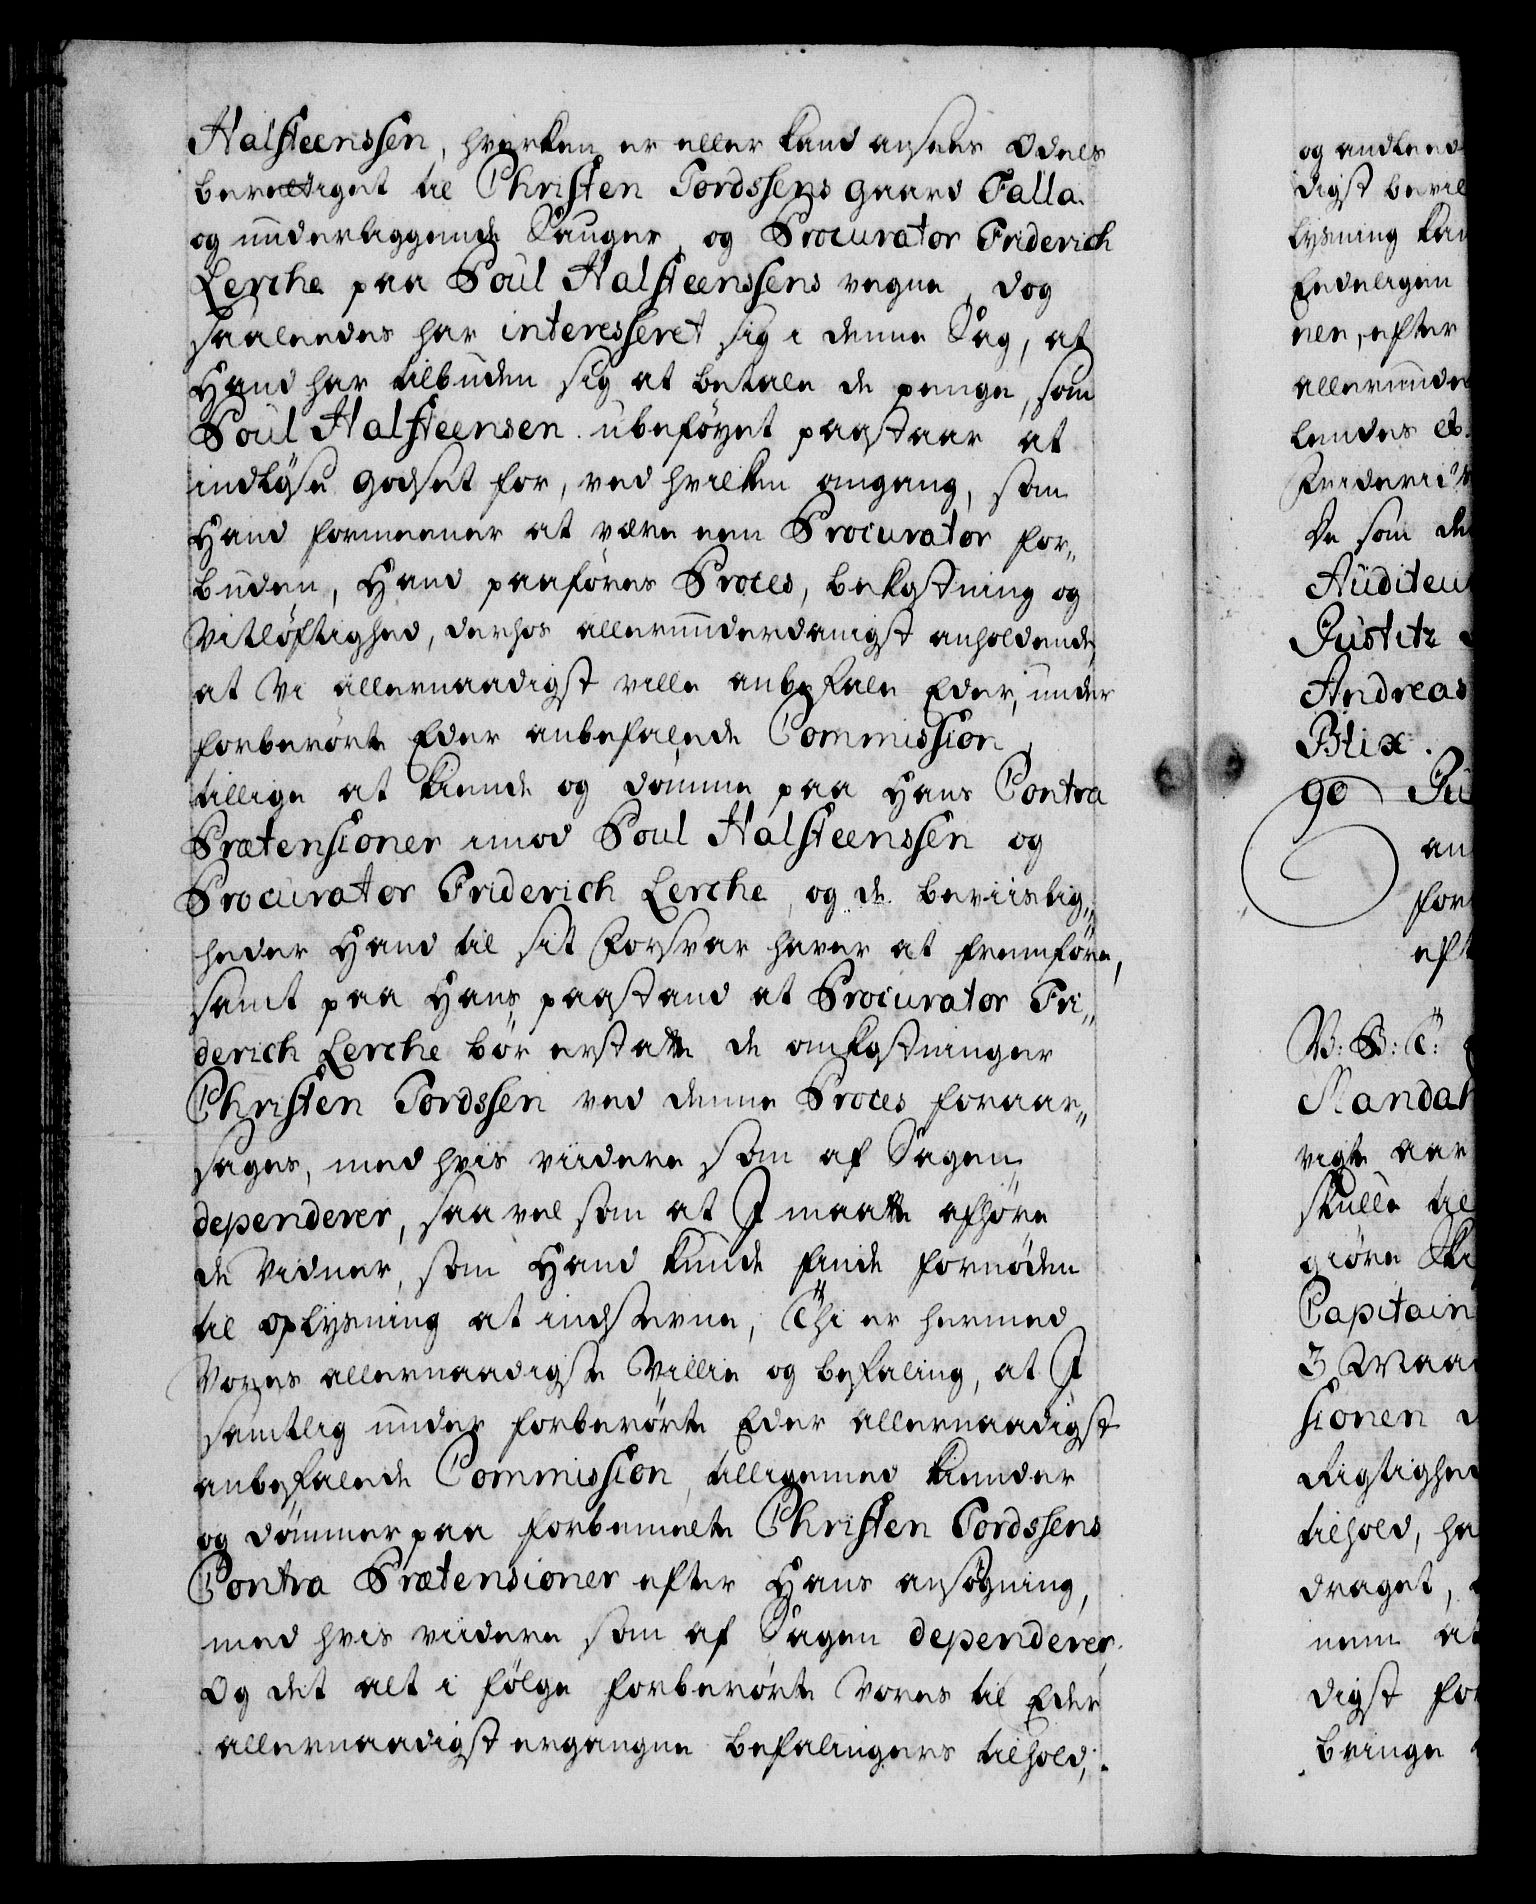 Halsteenssen, hverken er eller kand ansees Odels
berettiget til Christen Tordssens gaard Falla
og underliggende Sauger, og Procurator Friderich
Lerche paa Poul Halsteenssens vegne, dog
saaleedes har interesseret sig i denne Sag, at
Hand har tilbuden sig at betale de penge, som
Poul Halsteensen ubeføyet paastaar at
indløse godset for, ved hvilken omgang, som
Hand formeener at være een Procurator for„
buden, Hand paaføres Proces, bekostning og
Vitløftighed, derhos allerunderdanigst anholdende,
at Vi allernaadigst ville anbefale Eder, under
forberørte Eder anbefalede Commission,
tillige at kiende og dømme paa Hans Contra
Prætensioner imod Poul Halsteenssen og
Procurator Friderich Lerche, og de beviislig„
heder Hand til sit Forsvar haver at fremføre,
samt paa Hans paastand at Procurator Fri„
derich Lerche bør erstatte de omkostninger
Christen Tordssen ved denne Proces foraar„
sages, med hvis viidere som af Sagen
dependerer, saa vel som at I maatte afhøre
de Vidner, som Hand kunde finde fornøden
til oplysning at indstevne; Thi er hermed
Vores allernaadigste Villie og befaling, at I
samtlig under forberørte Eder allernaadigst
anbefalede Commission, tilligemed kiender
og dømmer paa forbemelte Christen Tordssens
Contra Prætensioner efter Hans ansøgning,
med hvis viidere som af Sagen dependerer.
Og det alt i følge forberørte Vores til Eder
allernaadigst ergangne befalingers tilhold,
og andleed
digst bevil
lysning kan
Endeligen
nen, efter
allerunde
lendes et
Frideric
De som de
Auditeu
Justitz
Andreas
Blix.
90 Ju
an
for
eft
V: B: T:
Mandal
vigte aar
skulle til
giøre Ski
Capitain
3 Maa
sionen
Rigtighe
tilhold, ha
draget,
nem at
digst for
bringe